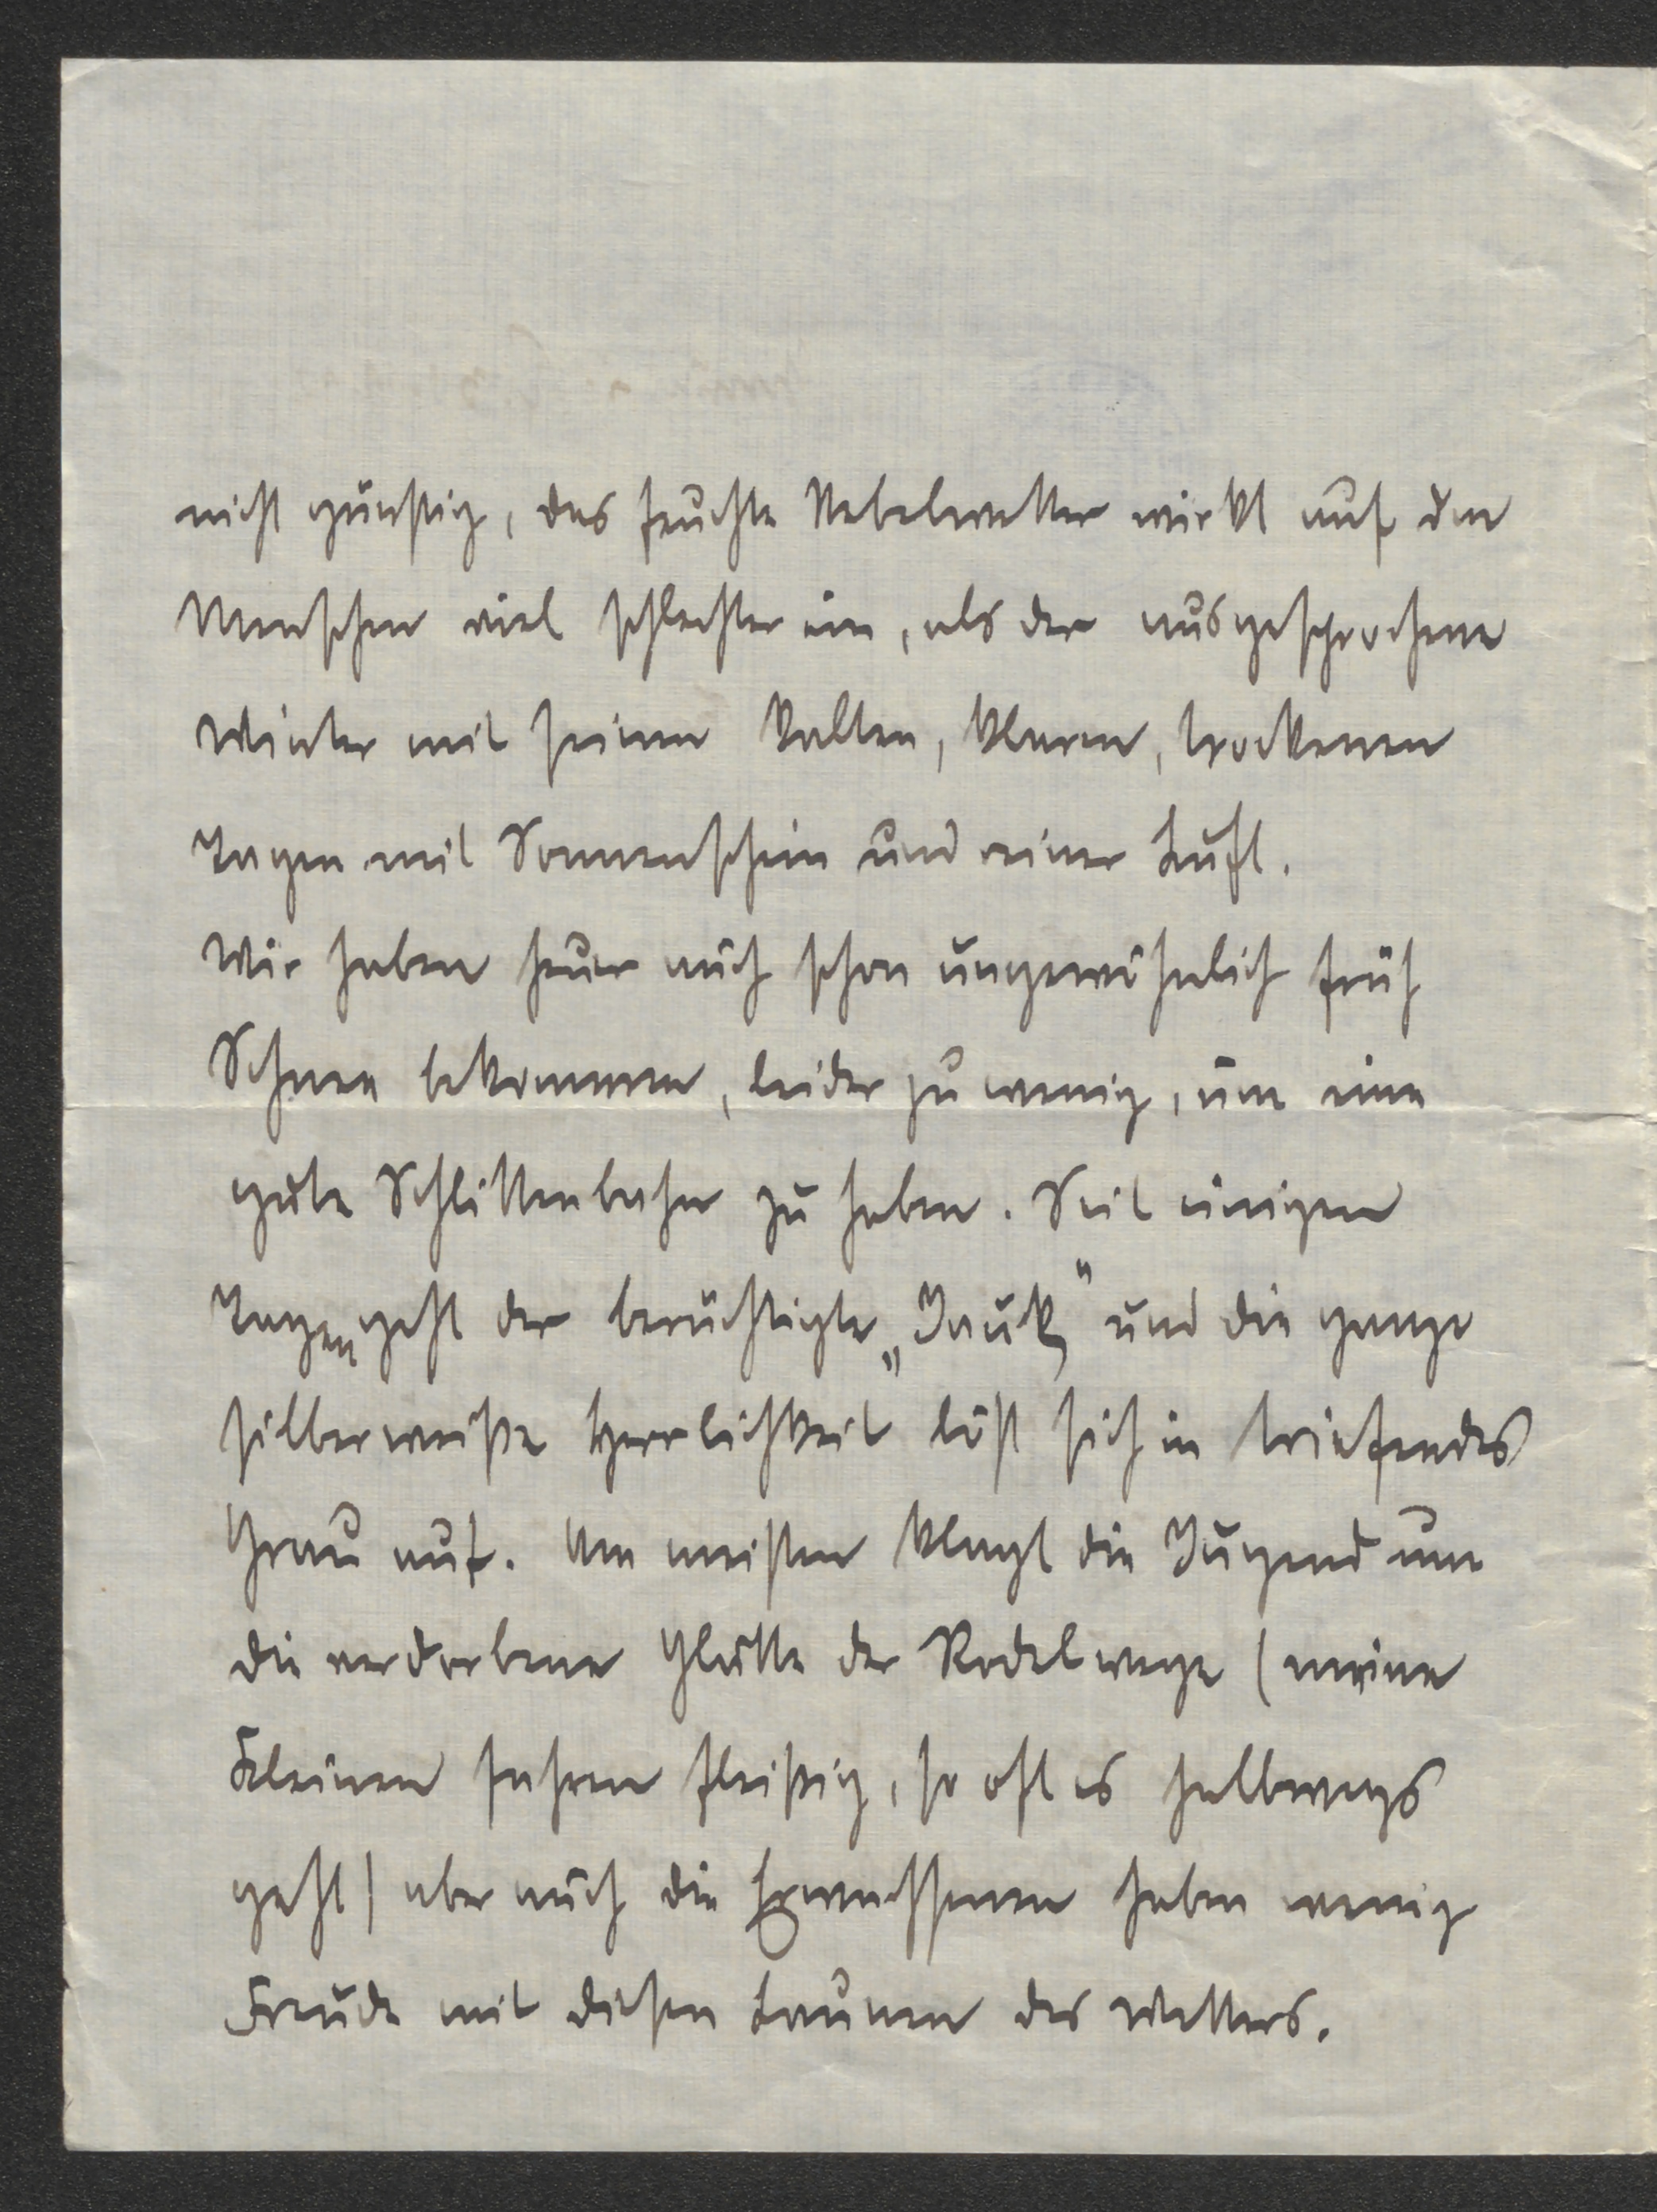 nicht günstig, das feuchte Nebelwetter wirkt auf den
Menschen viel schlechter ein, als der ausgesprochene
Winter mit seinen kalten, klaren, trockenen
Tagen mit Sonnenschein und reiner Luft.
Wir haben heuer auch schon ungewöhnlich früh
Schnee bekommen, leider zu wenig, um eine
gute Schlittenbahn zu haben. Seit einigen
Tagen geht der berüchtigte „Jauk" und die ganze
silberweiße Herrlichkeit löst sich in triefendes
Grau auf. Am meisten klagt die Jugend um
die verdorbene Glätte der Rodelwege (meine
Kleinen fahren fleißig, so oft es halbwegs
geht) aber auch die Erwachsenen haben wenig
Freude mit diesen Launen des Wetters.